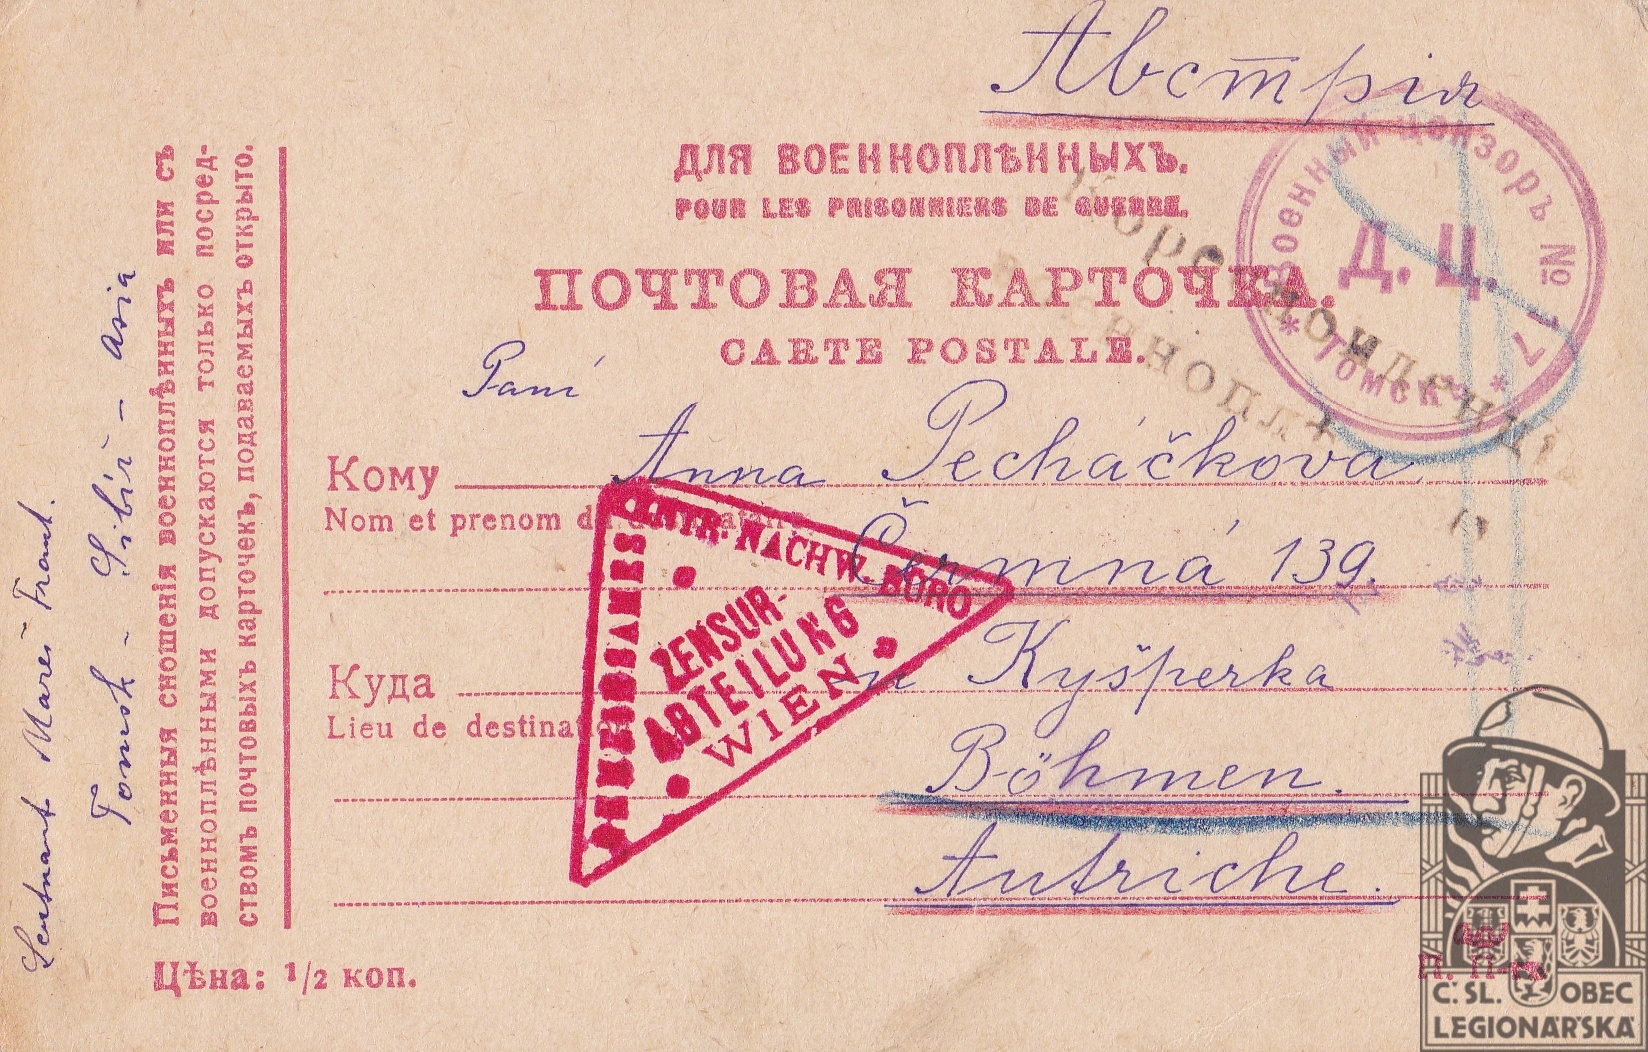 Австрія
ДЛЯ ВОЕННОПЛѢННЫХЪ.
POUR LES PRISONNIERS DE GUERRE.
ПОЧТОВАЯ КАРТОЧКА.
CARTE POSTALE.
Военный Цензоръ № 17
Д. Ц.
* Томскъ *
Paní
Кому Anna Pecháčkova
Nom et prenom du
Čermná 139.
Куда u Kyšperka
Lieu de destination
Böhmen.
Autriche.
CENTR. NACHW. BÜRO
ZENSUR-
ABTEILUNG
WIEN
Письменныя сношенія военноплѣнныхъ или съ
военноплѣнными допускаются только посред-
ствомъ почтовыхъ карточекъ, подаваемыхъ открыто.
Цѣна: 1/2 коп.
Leutnant Mareš Frant.
Tomsk - Sibiř - Asia
Č. SL. OBEC
LEGIONÁŘSKÁ